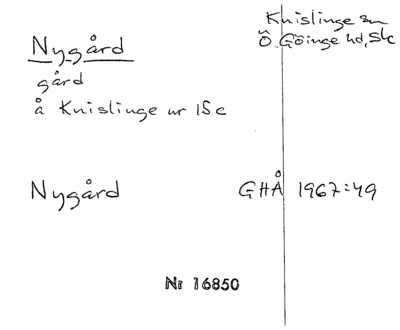 Nygård
Knislinge sn
Ö. Göinge hd, Sk
gård
å Knislinge nr 15c
Nygård GHÅ 1967:49
Nr 16850